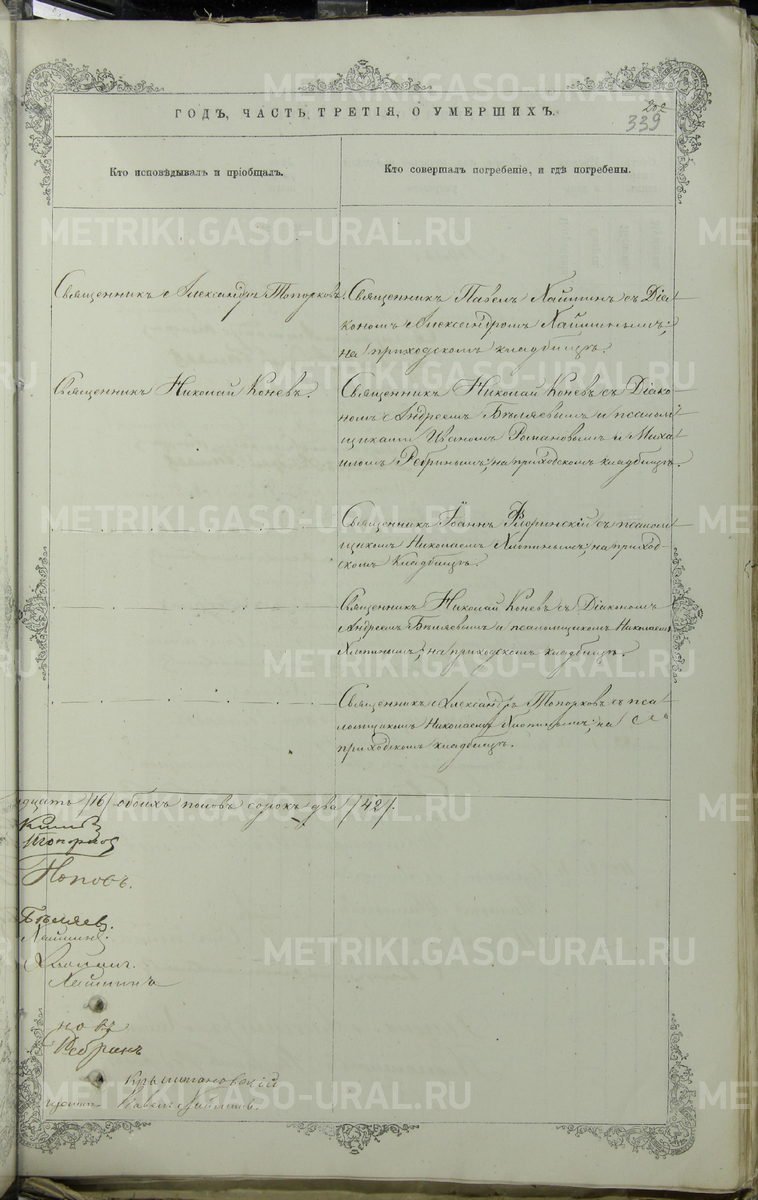 ГОДЪ, ЧАСТЬ ТРЕТІЯ, О УМЕРШИХЪ.
339
Кто исповѣдывалъ и пріобщалъ.
Кто совершалъ погребеніе, и гдѣ погребены.
Священникъ Александръ Топорковъ.
Священникъ Павелъ Хайминъ съ Діа-
кономъ Александромъ Хайминымъ;
на приходскомъ кладбищѣ.
Священникъ Николай Коневъ.
Священникъ Николай Коневъ съ Діако-
номъ Андреемъ Бѣляевымъ и псалом-
щиками Иваномъ Романовымъ и Миха-
иломъ Ребринымъ; на приходскомъ кладбищѣ.
Священникъ Іоаннъ Флоринскій съ псалом-
щикомъ Николаемъ Хлопинымъ; на приход-
скомъ кладбищѣ.
Священникъ Николай Коневъ съ Діакономъ
Андреемъ Бѣляевымъ и псаломщикомъ Николаемъ
Хлопинымъ; на приходскомъ кладбищѣ.
Священникъ Александръ Топорковъ съ пса-
ломщикомъ Николаемъ Хлопинымъ; на
приходскомъ кладбищѣ.
дцать /16/ обоихъ половъ сорокъ два /42/.
Топорковъ
Поповъ.
Бѣляевъ.
Хайминъ.
Хайминъ
новъ
Ребринъ
METRIKI.GASO-URAL.RU